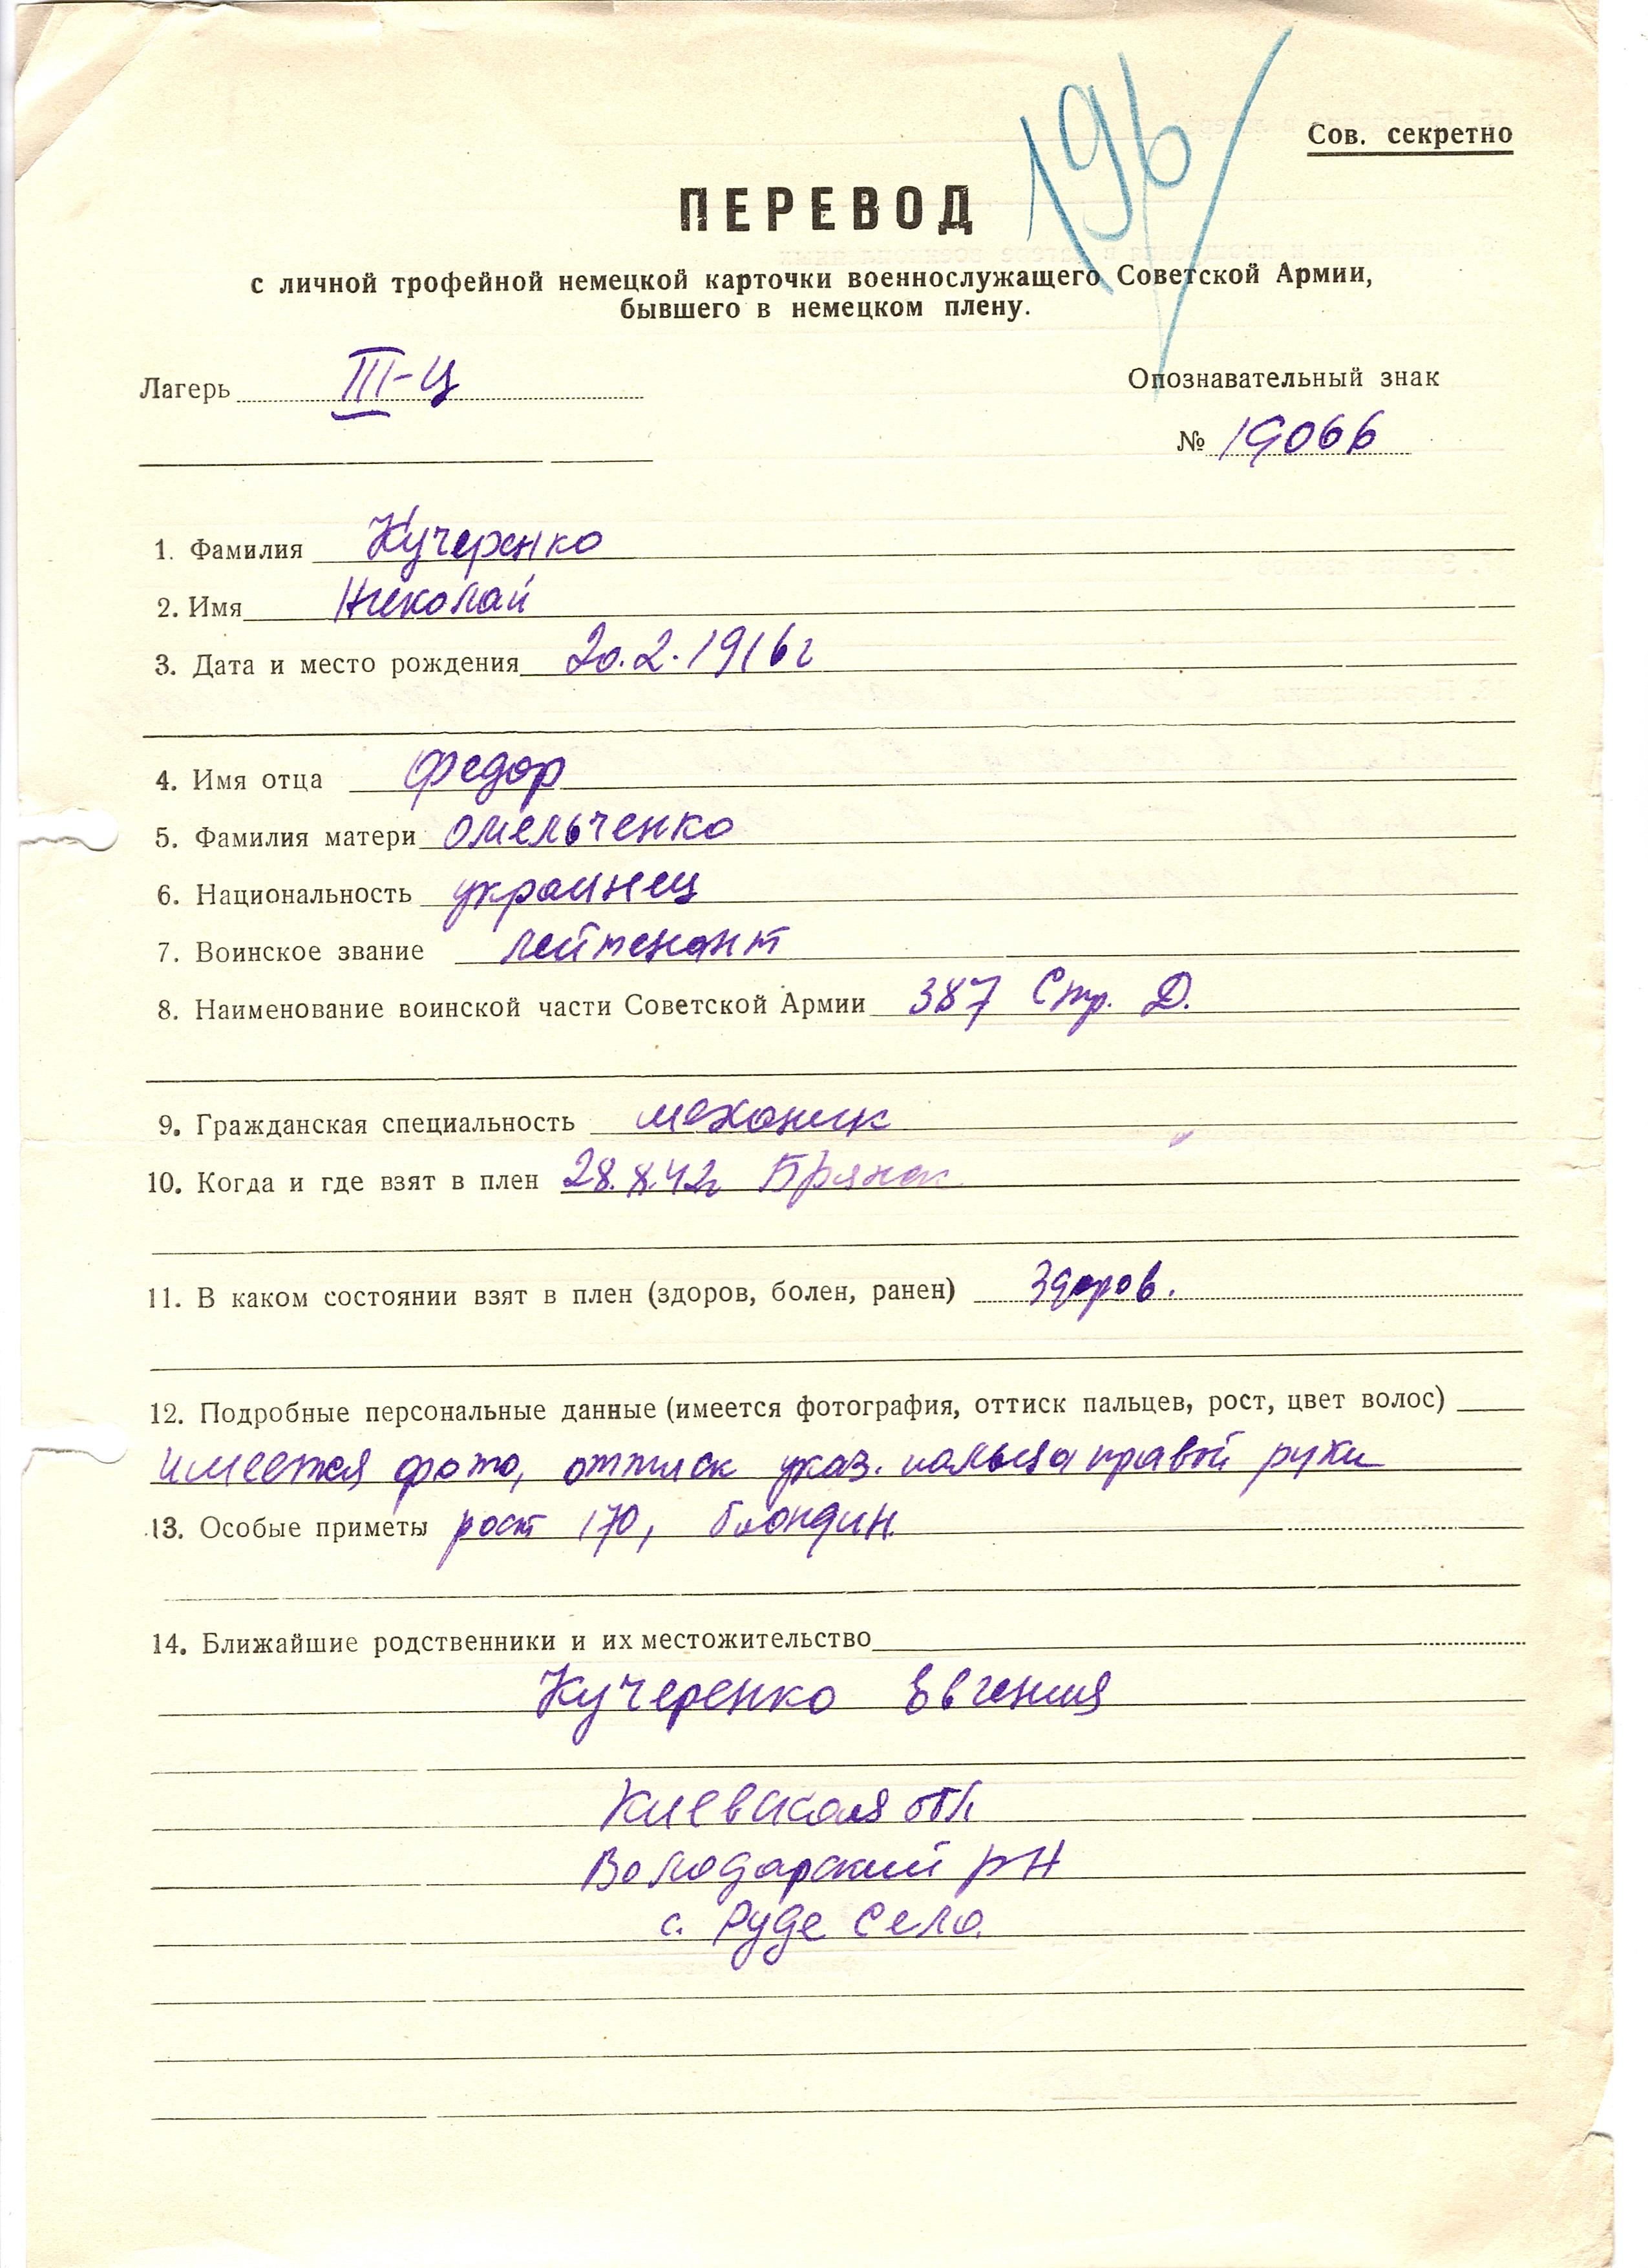 196
Сов. секретно
ПЕРЕВОД
с личной трофейной немецкой карточки военнослужащего Советской Армии,
бывшего в немецком плену.
Лагерь III-Ц
Опознавательный знак
№ 19066
1. Фамилия Кучеренко
2. Имя Николай
3. Дата и место рождения 20.2.1916г
4. Имя отца Федор
5. Фамилия матери Омельченко
6. Национальность украинец
7. Воинское звание лейтенант
8. Наименование воинской части Советской Армии 387 Стр. Д.
9. Гражданская специальность механик
10. Когда и где взят в плен 28.8.42г Брянск
11. В каком состоянии взят в плен (здоров, болен, ранен) здоров.
12. Подробные персональные данные (имеется фотография, оттиск пальцев, рост, цвет волос)
имеется фото, оттиск указ. пальца правой руки
13. Особые приметы рост 170, блондин
14. Ближайшие родственники и их местожительство
Кучеренко Евгения
Киевская обл.
Володарский р-н
с. Руде Село.